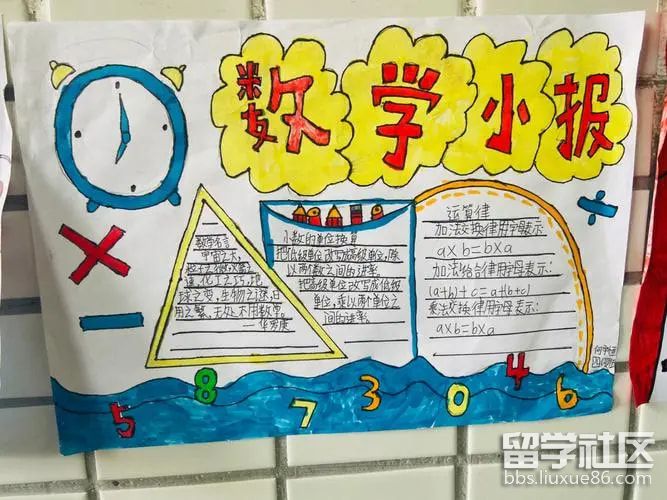 数学小报
数学名言
宇宙之大,
粒子之微,火箭之
速,化工之巧,地
球之变,生物之谜,日
用之繁,无处不用数学。
——华罗庚
小数的单位换算
把低级单位改写成高级单位,除
以两个数之间的进率。
把高级单位改写成低级
单位,乘以两个单位之
间的进率。
运算律
加法交换律用字母表示:
a×b=b×a
加法结合律用字母表示:
(a+b)+c=a+(b+c)
乘法交换律用字母表示:
a×b=b×a
5 8 7 3 0 4 6
留学社区
bbs.liuxue86.com